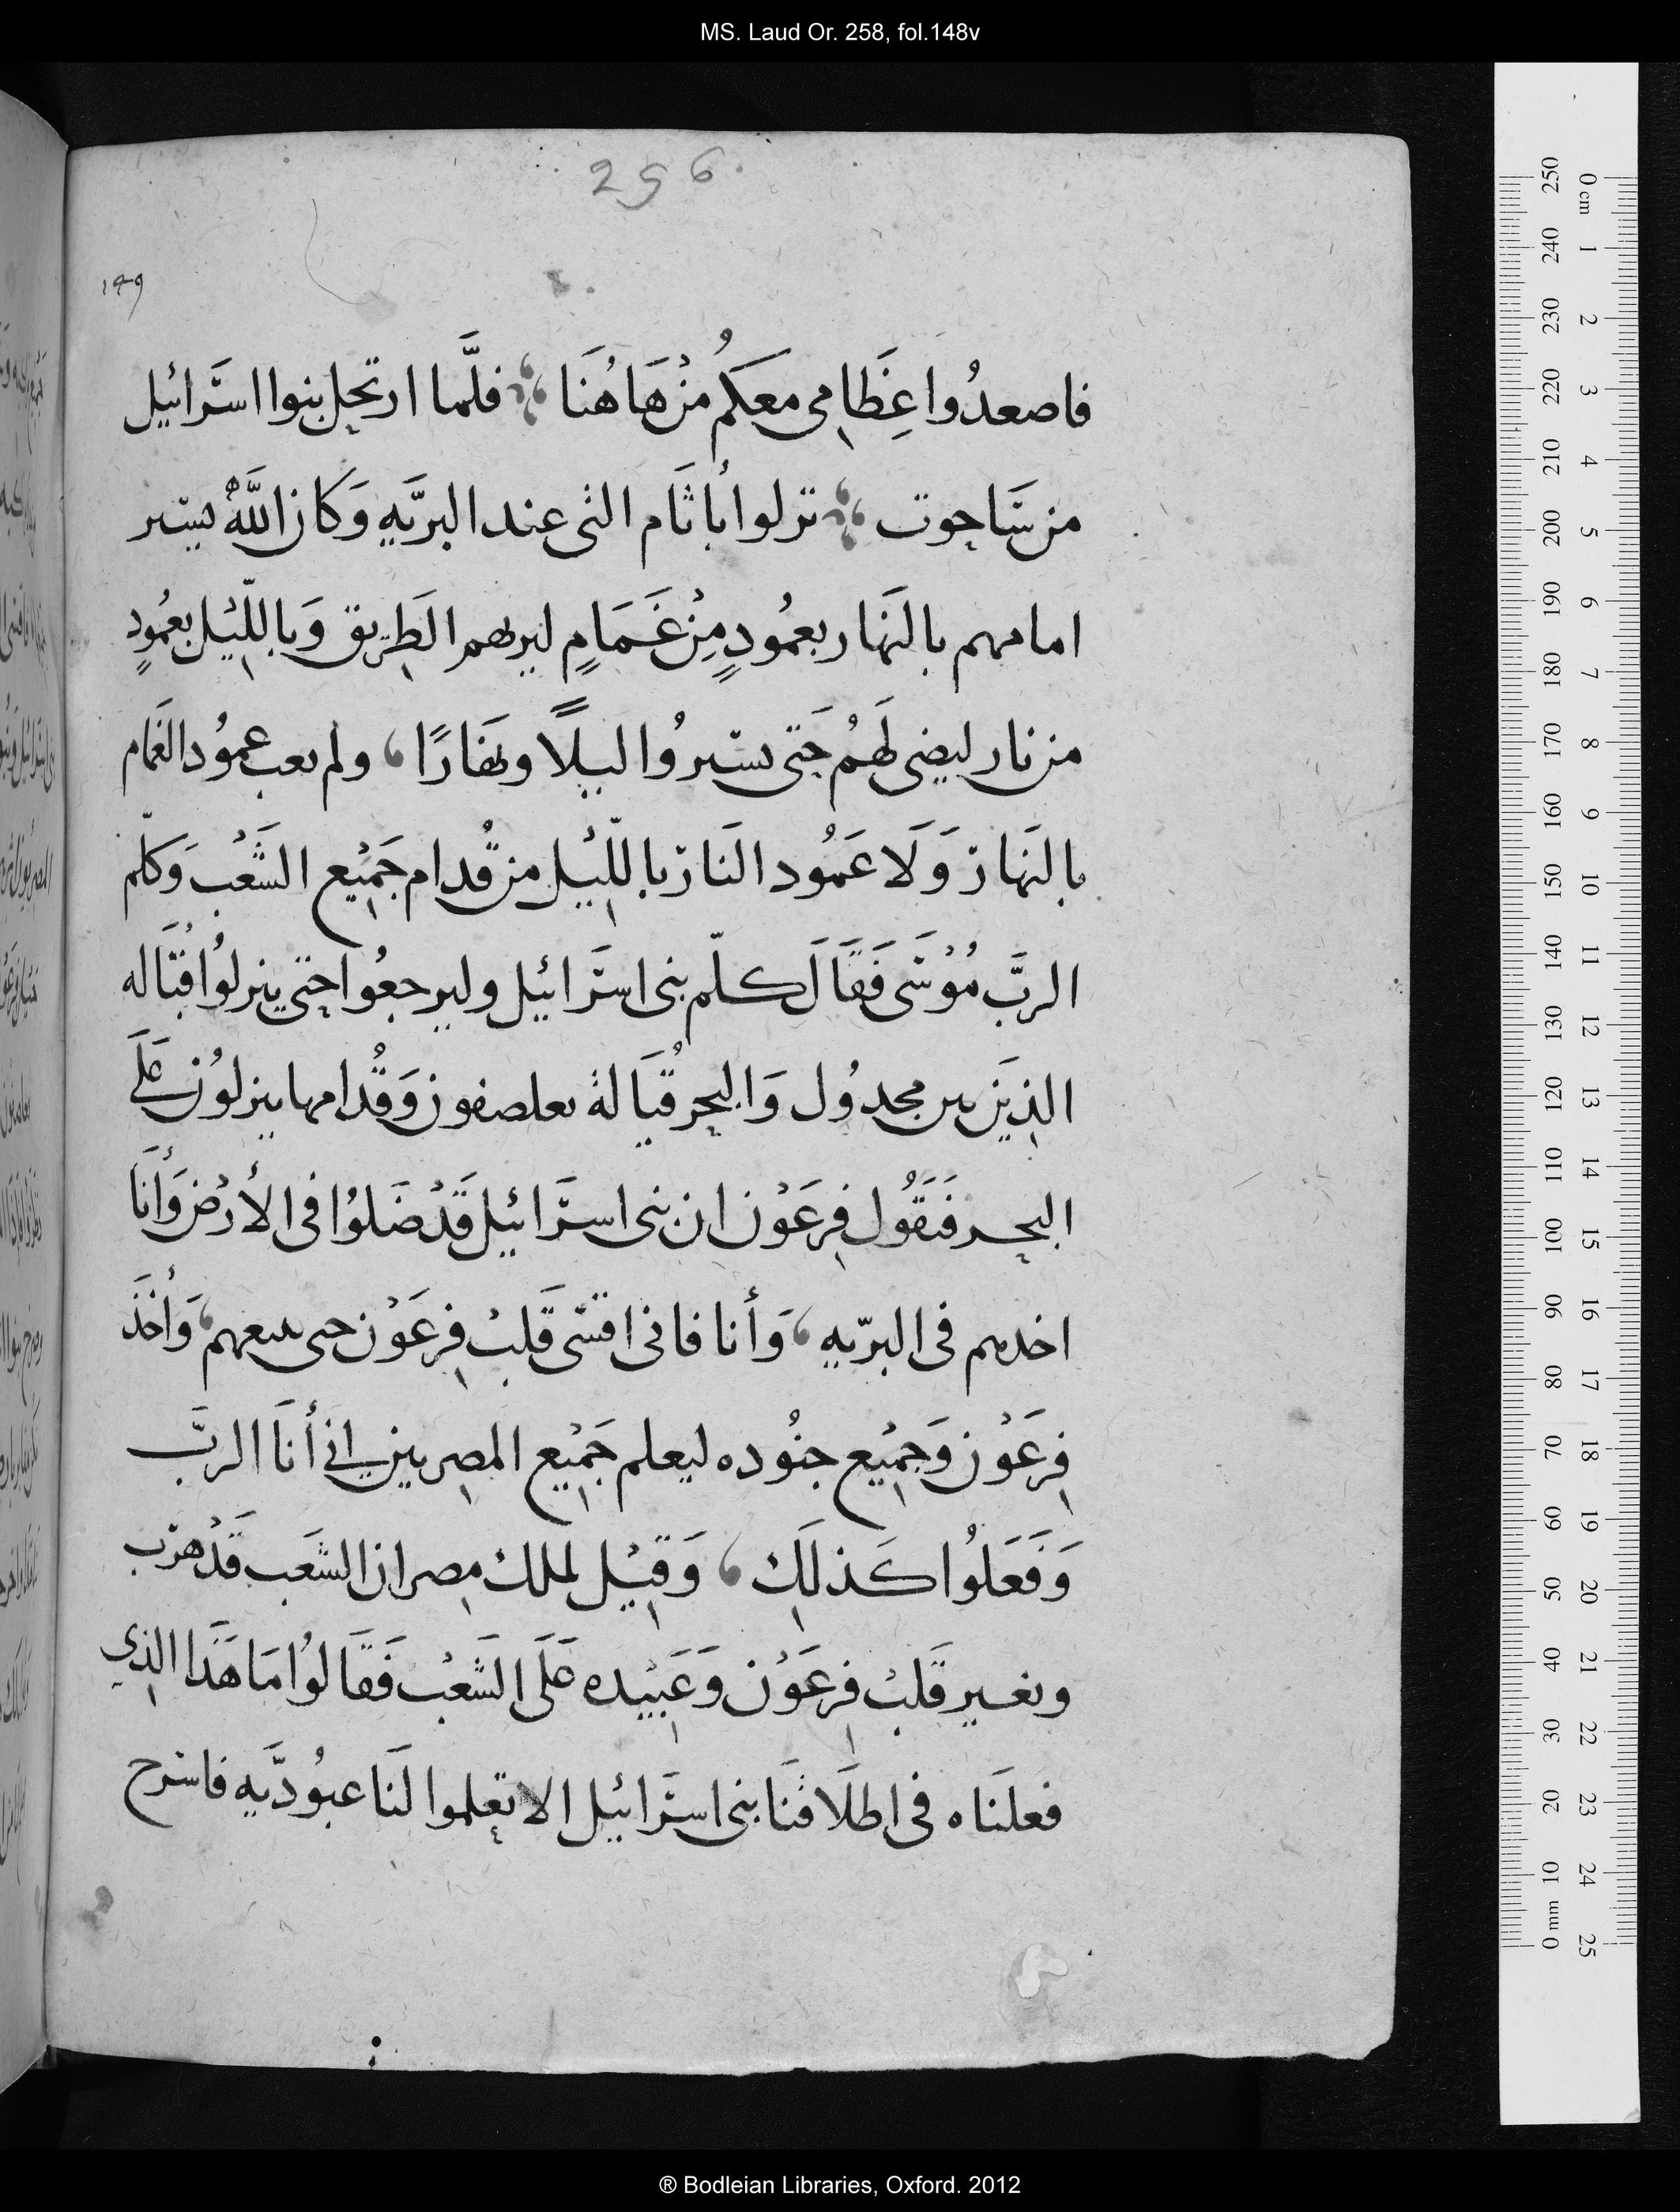 MS. Laud Or. 258, fol.148v
256
149
فاصعدُوا عِظَامِى معكمُ مِنْ هَاهُنَا فلَّما ارتحل بنوا اسَّرائيل
من سَّاحوت نزلوا بُاثَام التى عند البرَّيه وَكان اللَّهُ يسير
امامهم بالنَهار بعمُودٍ مِنْ غَمَامٍ ليريهم الطَرِيق وَبالليْل بعمُودٍ
من نار ليضى لهَمُ حَتى يسّيروُا ليلًا ونهَارًا ولم يغب عموُد الغَمام
بالنَهار وَلَا عَموُد النَار باللّيْل من قُدام جَميْع الشَّعْب وَكلّم
الربَّ مُوْسَّى فَقَالَ كلّم بنى اسَّرائيل وليرجعُوا حتى ينزلوُا قبَُاله
الذيَن بين مجدوُل وَالبحر قُبَالة بعلصفون وَقُدامها ينزلوُن علَى
البحر فَيَقُول فِرعَوْن ان بنى اسَّرائيل قَدْ ضَلوُا فى الأرْض وَأنَا
اخدهم فى البرّيه وَأنا فانى اقسّى قَلبْ فِرعَوْن حتى يتبعهم وَأخُذَ
فِرعَوْن وَجميْع جنُوده ليعلم جَميْع المصِريين انى أنَا الربَّ
وَفَعَلوُا كَذلَِكْ وَقِيْل لملك مصِر ان الشَعب قَدْ هرَب
وتغير قَلبْ فِرعَوْن وَعَبِيْده عَلَى الشَّعْب فَقَالوُا مَا هَذَا الذِى
فعلَناه فى اطلَاقنَا بنى اسَّرائيل الا يعلموا لنَا عبوُدَّيه فاسَرح
0 cm 1 2 3 4 5 6 7 8 9 10 11 12 13 14 15 16 17 18 19 20 21 22 23 24 25
250 240 230 220 210 200 190 180 170 160 150 140 130 120 110 100 90 80 70 60 50 40 30 20 10 0 mm
® Bodleian Libraries, Oxford. 2012